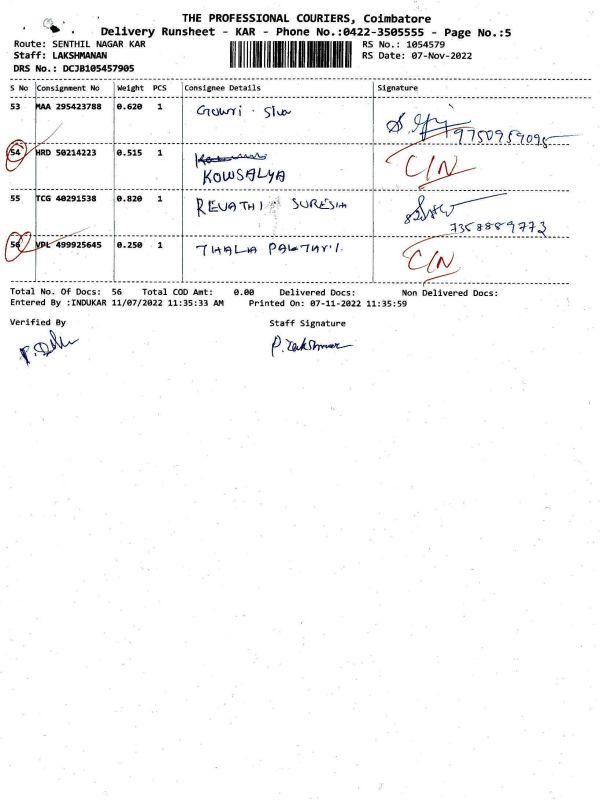 THE PROFESSIONAL COURIERS, Coimbatore
Delivery Runsheet - KAR - Phone No.:0422-3505555 - Page No.:5
Route: SENTHIL NAGAR KAR RS No.: 1054579
Staff: LAKSHMANAN RS Date: 07-Nov-2022
DRS No.: DCJB105457905
S No Consignment No Weight PCS Consignee Details Signature
53 MAA 295423788 0.620 1 Gowri . Siva
9750959095
54 HRD 50214223 0.515 1 C/N
KOWSALYA
55 TCG 40291538 0.820 1 REVATHI SURESH
7358889773
56 VPL 499925645 0.250 1 THALIA C/N
Total No. Of Docs: 56 Total COD Amt: 0.00 Delivered Docs: Non Delivered Docs:
Entered By :INDUKAR 11/07/2022 11:35:33 AM Printed On: 07-11-2022 11:35:59
Verified By Staff Signature
P. Lakshman